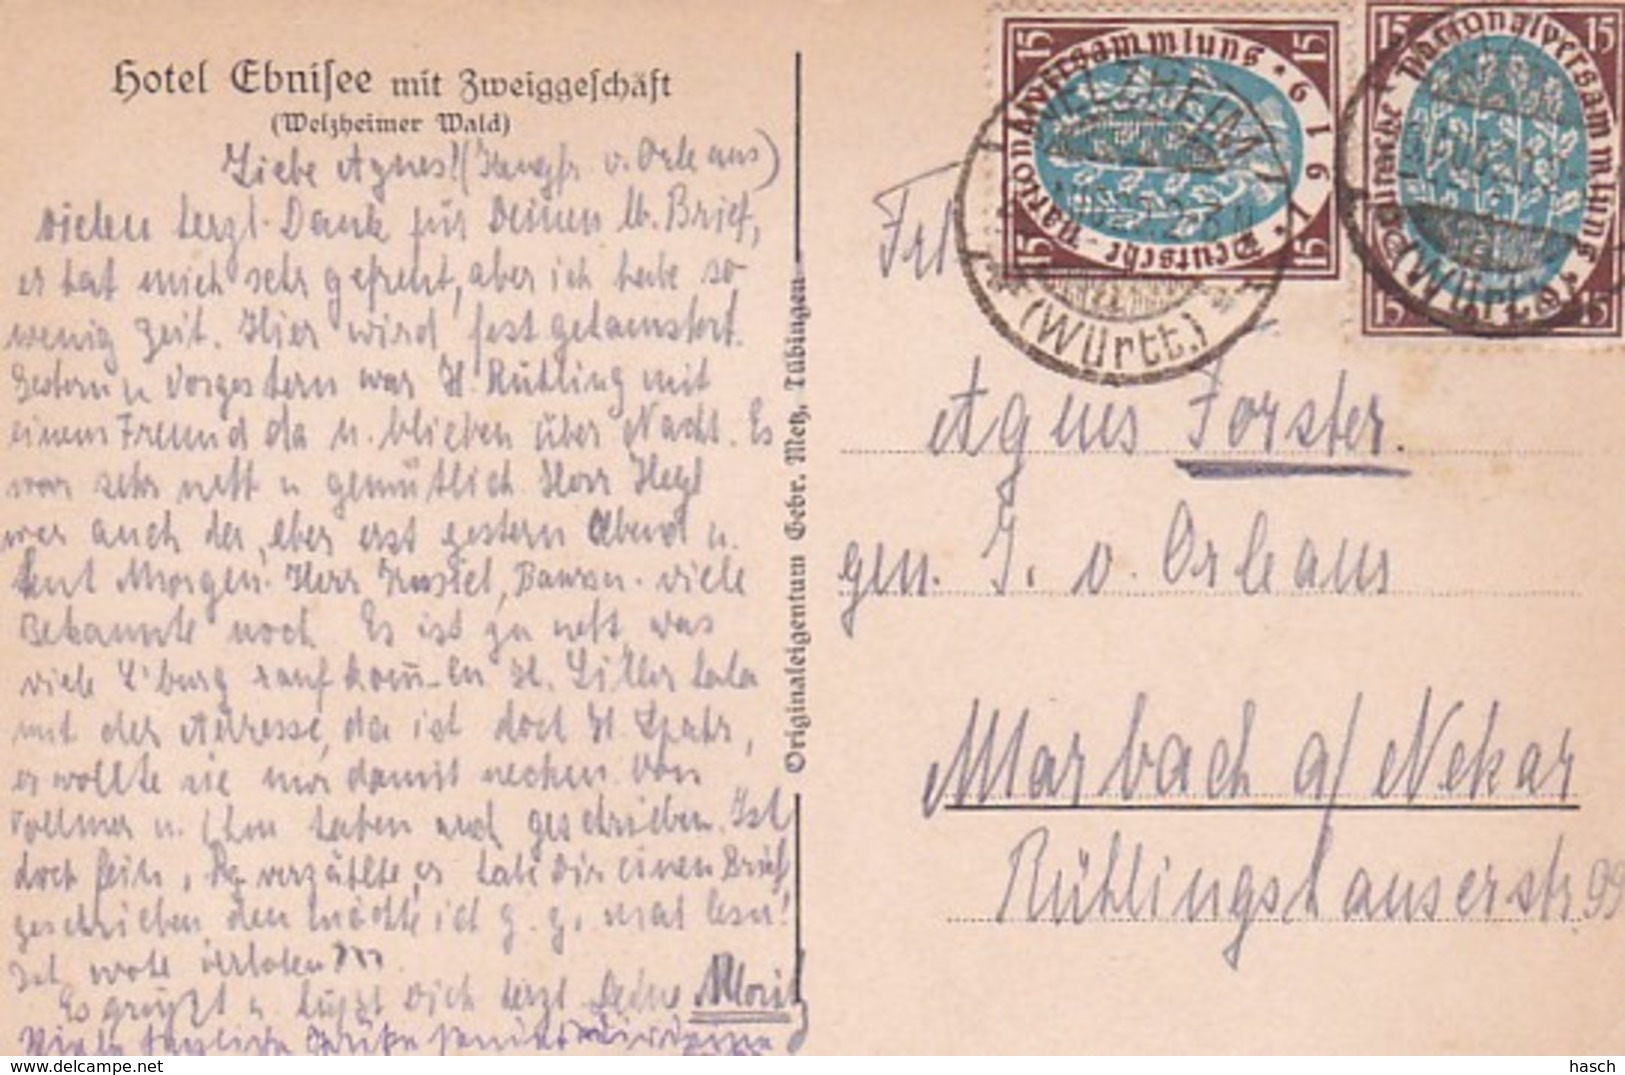 Hotel Ebnisee mit Zweiggeschäft
(Welzheimer Wald)
Liebe Agnes! (Jungfr. v. Orleans)
vielen herzl. Dank für Deinen lb. Brief,
er hat mich sehr gefreut, aber ich habe so
wenig Zeit. Hier wird fest gehamstert.
Gestern u Vorgestern war H. Rühling mit
einem Freund da u. blieben über Nacht. Es
war sehr nett u gemütlich. Herr Hegl
war auch da, aber erst gestern Abend u.
heut Morgen. Herr viele
Bekannte noch. Es ist zu nett, was
viele L'burg rauf H.
mit der Adresse, da ist doch H. Spahr,
er wollte sie nur damit necken. Von
Vollmer u. haben auch geschrieben. Ist
doch fein, erzählte, er hab Dir einen Brief
geschrieben den möchte ich g. g. mal lesn!
Es grüßt u. küßt Dich herzl. Deine Moritz
Originaleigentum Gebr. Metz, Tübingen
Frl
Agnes Forster.
gen. J. v. Orleans
Marbach a/ Nekar
Rühlingshauserstr. 99
15 15 15 15
Deutsche Nationalversammlung * 1919
15 15 15 15
Deutsche Nationalversammlung * 1919
WELZHEIM
(Württ.)
(Württ.)
hasch